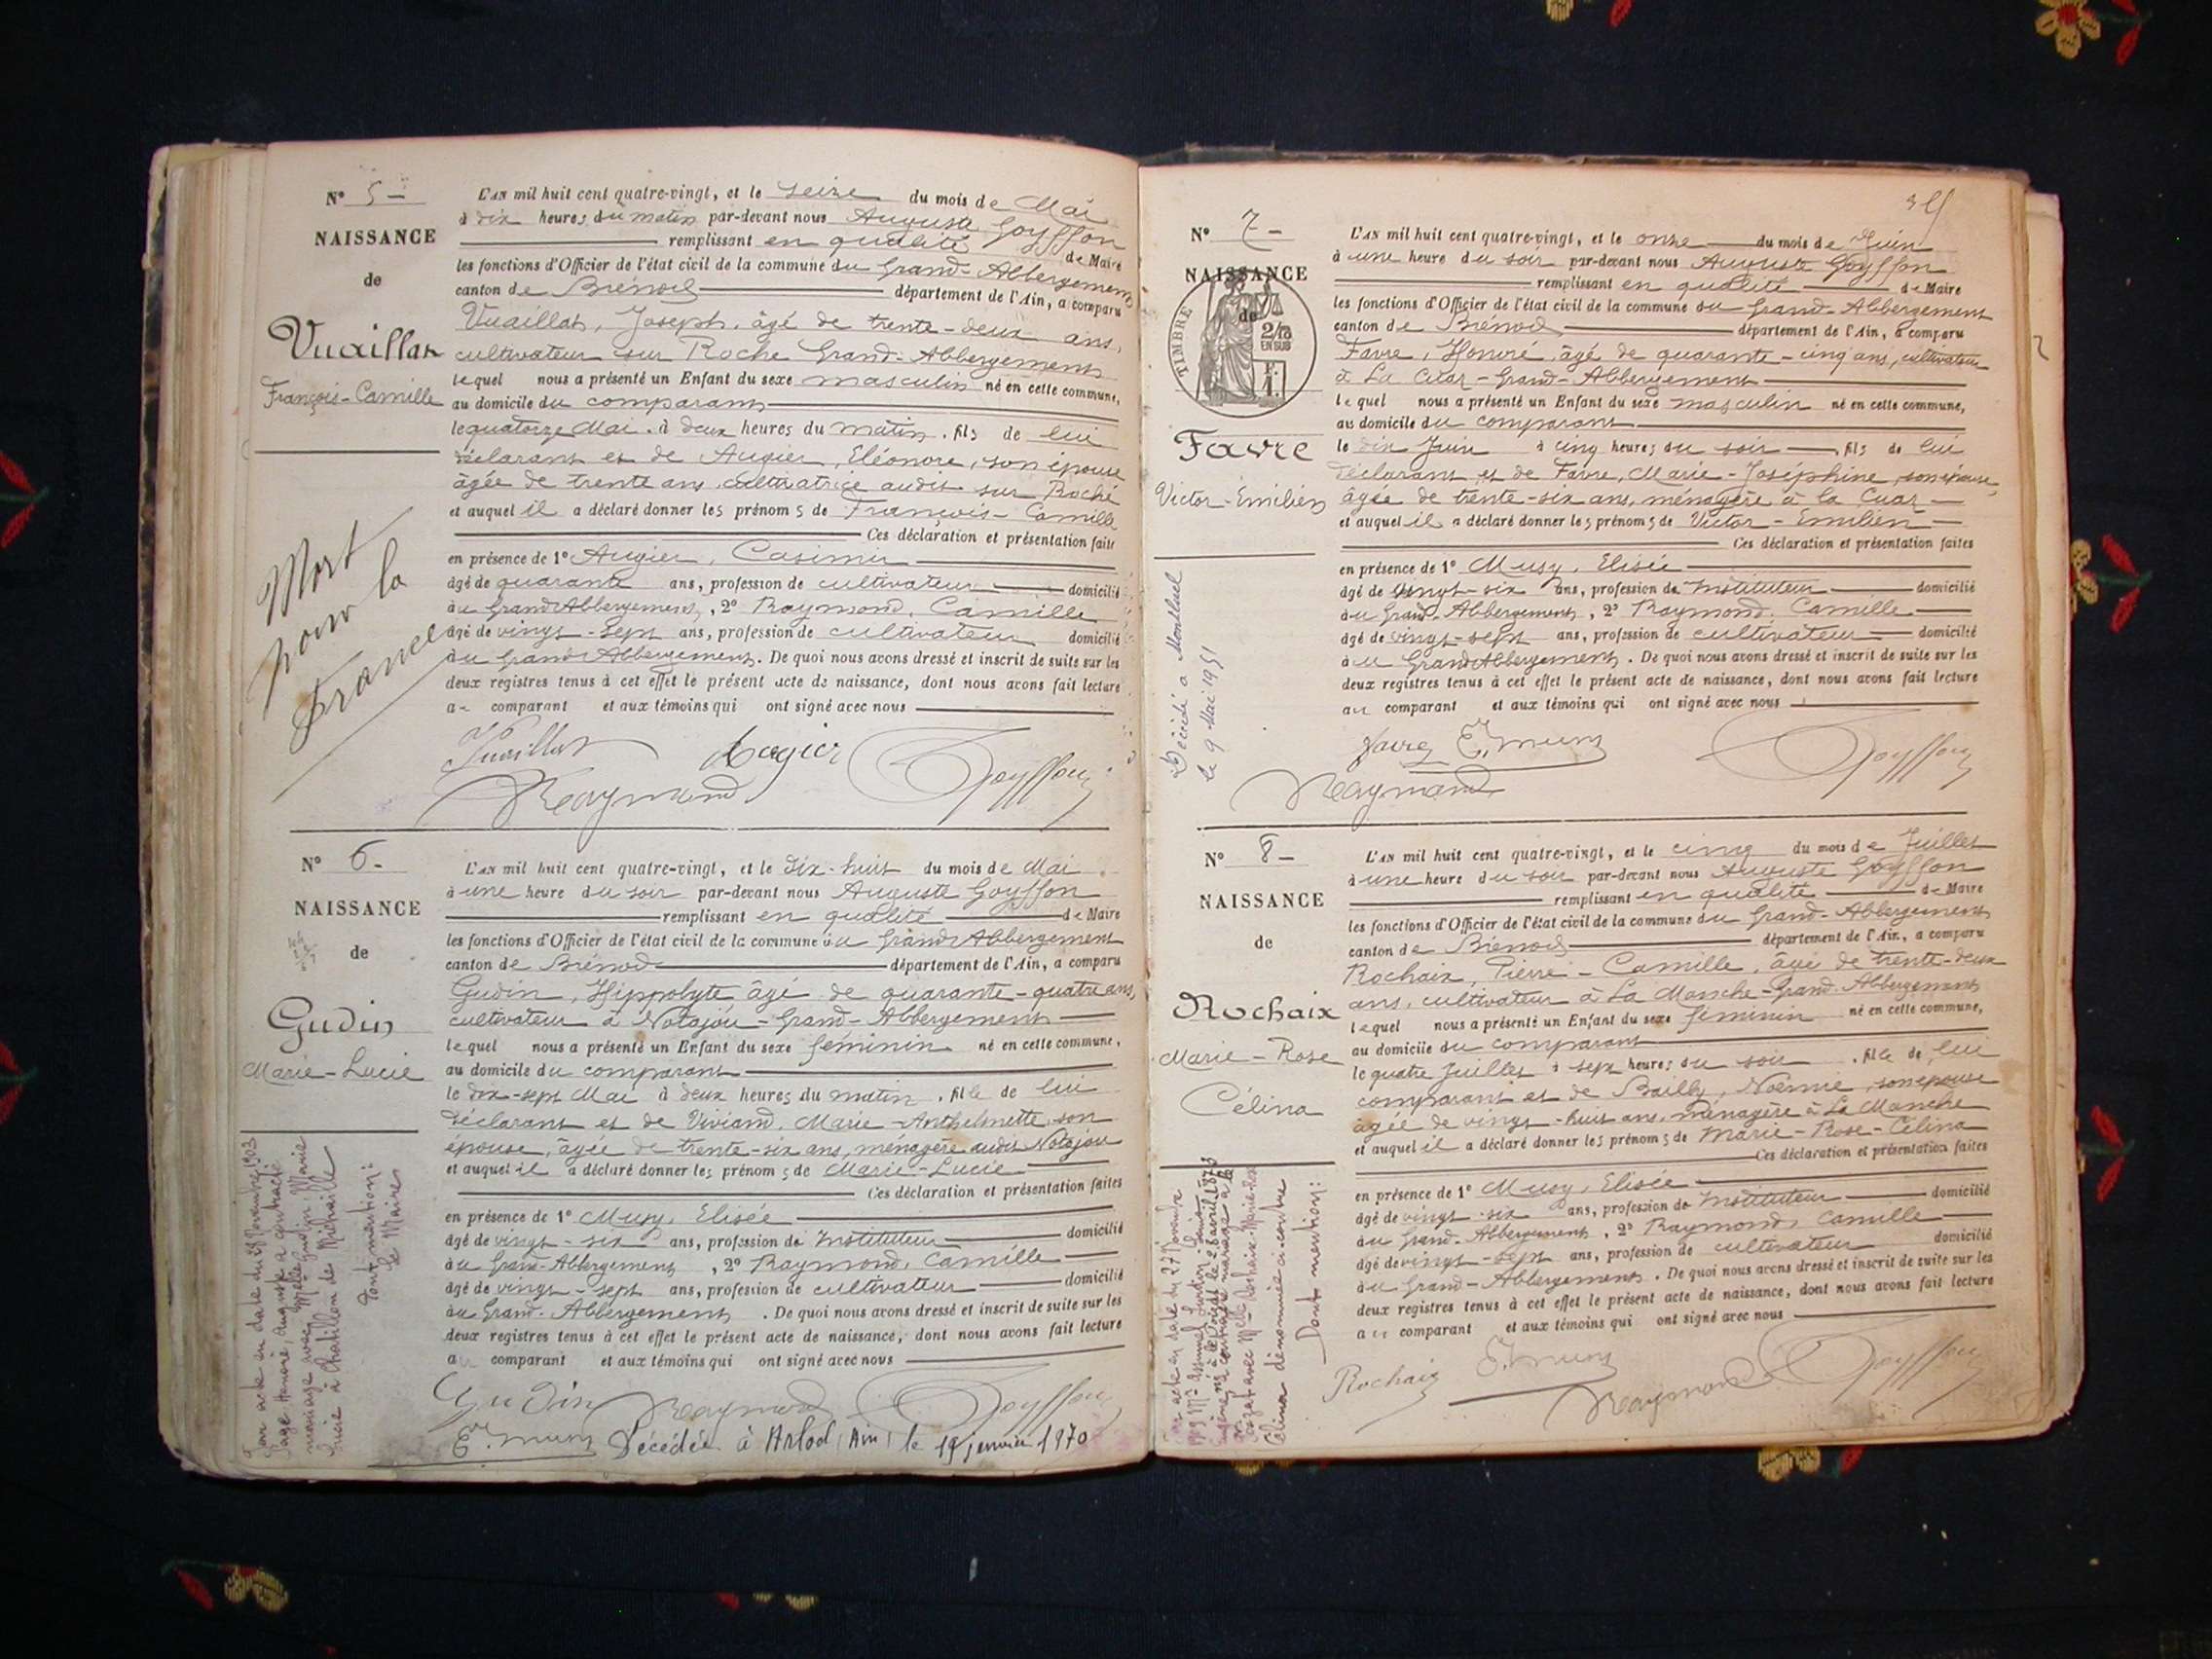 N° 5 –
NAISSANCE
de
Vuaillat
François-Camille
Mort
pour la
France
L'AN mil huit cent quatre-vingt, et le seize du mois de Mai
à dix heures du matin par-devant nous Auguste Goyffon
remplissant en qualité de Maire
les fonctions d'Officier de l'état civil de la commune du Grand-Abbergement
canton de Brénod département de l'Ain, a comparu
Vuaillat, Joseph, âgé de trente-deux ans,
cultivateur sur Roche Grand-Abbergement
lequel nous a présenté un Enfant du sexe masculin né en cette commune,
au domicile du comparant
le quatorze Mai à deux heures du matin, fils de lui
déclarant et de Augier, Eléonore, son épouse
âgée de trente ans, cultivatrice audit sur Roche
et auquel il a déclaré donner les prénoms de François-Camille
Ces déclaration et présentation faites
en présence de 1° Augier, Casimir
âgé de quarante ans, profession de cultivateur domicilié
au Grand Abbergement, 2° Raymond, Camille
âgé de vingt-sept ans, profession de cultivateur domicilié
au Grand Abbergement. De quoi nous avons dressé et inscrit de suite sur les
deux registres tenus à cet effet le présent acte de naissance, dont nous avons fait lecture
au comparant et aux témoins qui ont signé avec nous
Vuaillat Augier
Raymond Goyffon
N° 6 –
NAISSANCE
de
Gudin
Marie-Lucie
Par acte en date du 28 Novembre 1903
Page Honoré Auguste a contracté
mariage avec Melle Gudin Marie
Lucie à Chatillon de Michaille
Dont mention:
Le Maire
L'AN mil huit cent quatre-vingt, et le dix-huit du mois de Mai
à une heure du soir par-devant nous Auguste Goyffon
remplissant en qualité de Maire
les fonctions d'Officier de l'état civil de la commune du Grand Abbergement
canton de Brénod département de l'Ain, a comparu
Gudin, Hippolyte âgé de quarante-quatre ans,
cultivateur à Notajou-Grand-Abbergement
lequel nous a présenté un Enfant du sexe féminin né en cette commune,
au domicile du comparant
le dix-sept Mai à deux heures du matin, fille de lui
déclarant et de Viviand, Marie-Anthelmette, son
épouse, âgée de trente-six ans, ménagère audit Notajou
et auquel il a déclaré donner les prénoms de Marie-Lucie
Ces déclaration et présentation faites
en présence de 1° Musy, Elisée
âgé de vingt-six ans, profession de Instituteur domicilié
au Grand-Abbergement, 2° Raymond, Camille
âgé de vingt-sept ans, profession de cultivateur domicilié
au Grand-Abbergement. De quoi nous avons dressé et inscrit de suite sur les
deux registres tenus à cet effet le présent acte de naissance, dont nous avons fait lecture
au comparant et aux témoins qui ont signé avec nous
Gudin Raymond Goyffon
E. Musy Décédée à Arlod (Ain) le 19 janvier 1970
N° 7 –
NAISSANCE
de
TIMBRE
2/10
EN SUS
F.
1.
Favre
Victor-Emilien
Décédé à Montluel
le 9 Mai 1951
L'AN mil huit cent quatre-vingt, et le onze du mois de Juin
à une heure du soir par-devant nous Auguste Goyffon
remplissant en qualité de Maire
les fonctions d'Officier de l'état civil de la commune du Grand-Abbergement
canton de Brénod département de l'Ain, a comparu
Favre, Honoré, âgé de quarante-cinq ans, cultivateur
à La Cuaz-Grand-Abbergement
lequel nous a présenté un Enfant du sexe masculin né en cette commune,
au domicile du comparant
le dix Juin à cinq heures du soir, fils de lui
déclarant et de Favre, Marie-Joséphine, son épouse,
âgée de trente-six ans, ménagère à la Cuaz
et auquel il a déclaré donner les prénoms de Victor-Emilien
Ces déclaration et présentation faites
en présence de 1° Musy, Elisée
âgé de vingt-six ans, profession de Instituteur domicilié
au Grand-Abbergement, 2° Raymond, Camille
âgé de vingt-sept ans, profession de cultivateur domicilié
au Grand Abbergement. De quoi nous avons dressé et inscrit de suite sur les
deux registres tenus à cet effet le présent acte de naissance, dont nous avons fait lecture
au comparant et aux témoins qui ont signé avec nous
Favre E. Musy Goyffon
Raymond
N° 8 –
NAISSANCE
de
Rochaix
Marie-Rose
Célina
Par acte en date du 27
à contracté mariage à
avec Melle Rochaix Marie-Rose
Célina dénommée ci-contre
Dont mention:
L'AN mil huit cent quatre-vingt, et le cinq du mois de Juillet
à une heure du soir par-devant nous Auguste Goyffon
remplissant en qualité de Maire
les fonctions d'Officier de l'état civil de la commune du Grand-Abbergement
canton de Brénod département de l'Ain, a comparu
Rochaix, Pierre-Camille, âgé de trente-deux
ans, cultivateur à La Manche-Grand-Abbergement
lequel nous a présenté un Enfant du sexe féminin né en cette commune,
au domicile du comparant
le quatre Juillet à sept heures du soir, fille de lui
comparant et de Bailly, Noëmie, son épouse
âgée de vingt-huit ans, ménagère à La Manche
et auquel il a déclaré donner les prénoms de Marie-Rose-Célina
Ces déclaration et présentation faites
en présence de 1° Musy, Elisée
âgé de vingt-six ans, profession de Instituteur domicilié
au Grand-Abbergement, 2° Raymond, Camille
âgé de vingt-sept ans, profession de cultivateur domicilié
au Grand-Abbergement. De quoi nous avons dressé et inscrit de suite sur les
deux registres tenus à cet effet le présent acte de naissance, dont nous avons fait lecture
au comparant et aux témoins qui ont signé avec nous
Rochaix E. Musy Goyffon
Raymond